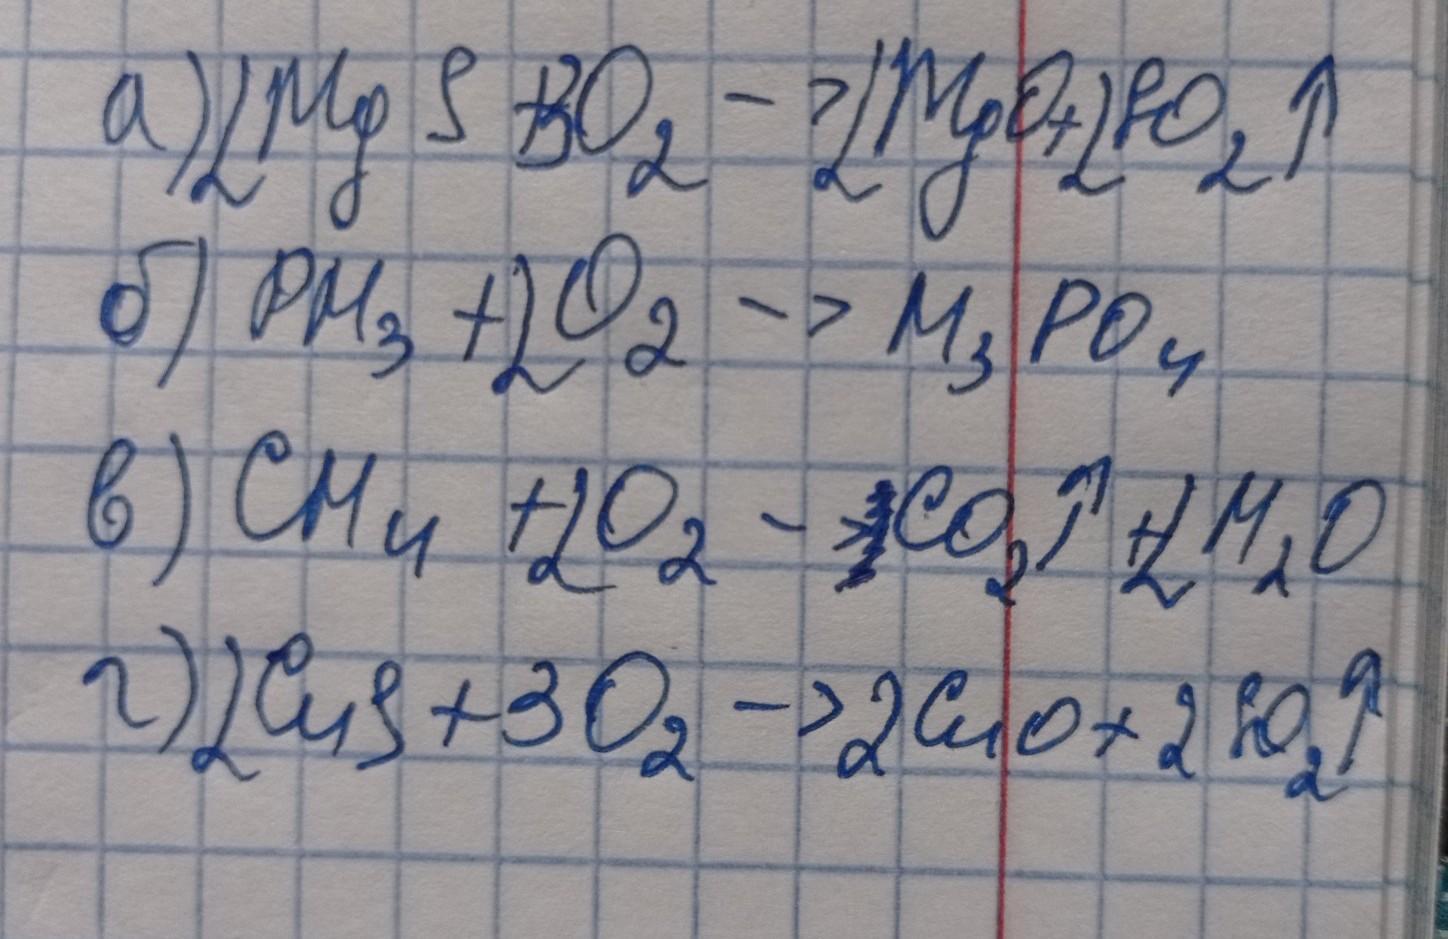 а) 2MgS + 3O₂ -> 2MgO + 2SO₂↑
б) PH₃ + 2O₂ -> H₃PO₄
в) CH₄ + 2O₂ -> CO₂↑ + 2H₂O
г) 2CuS + 3O₂ -> 2CuO + 2SO₂↑